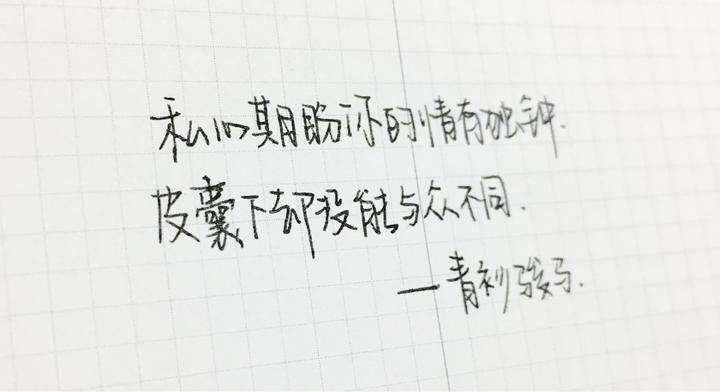 私心期盼你的情有独钟.
皮囊下却没能与众不同.
—青衫骏马.